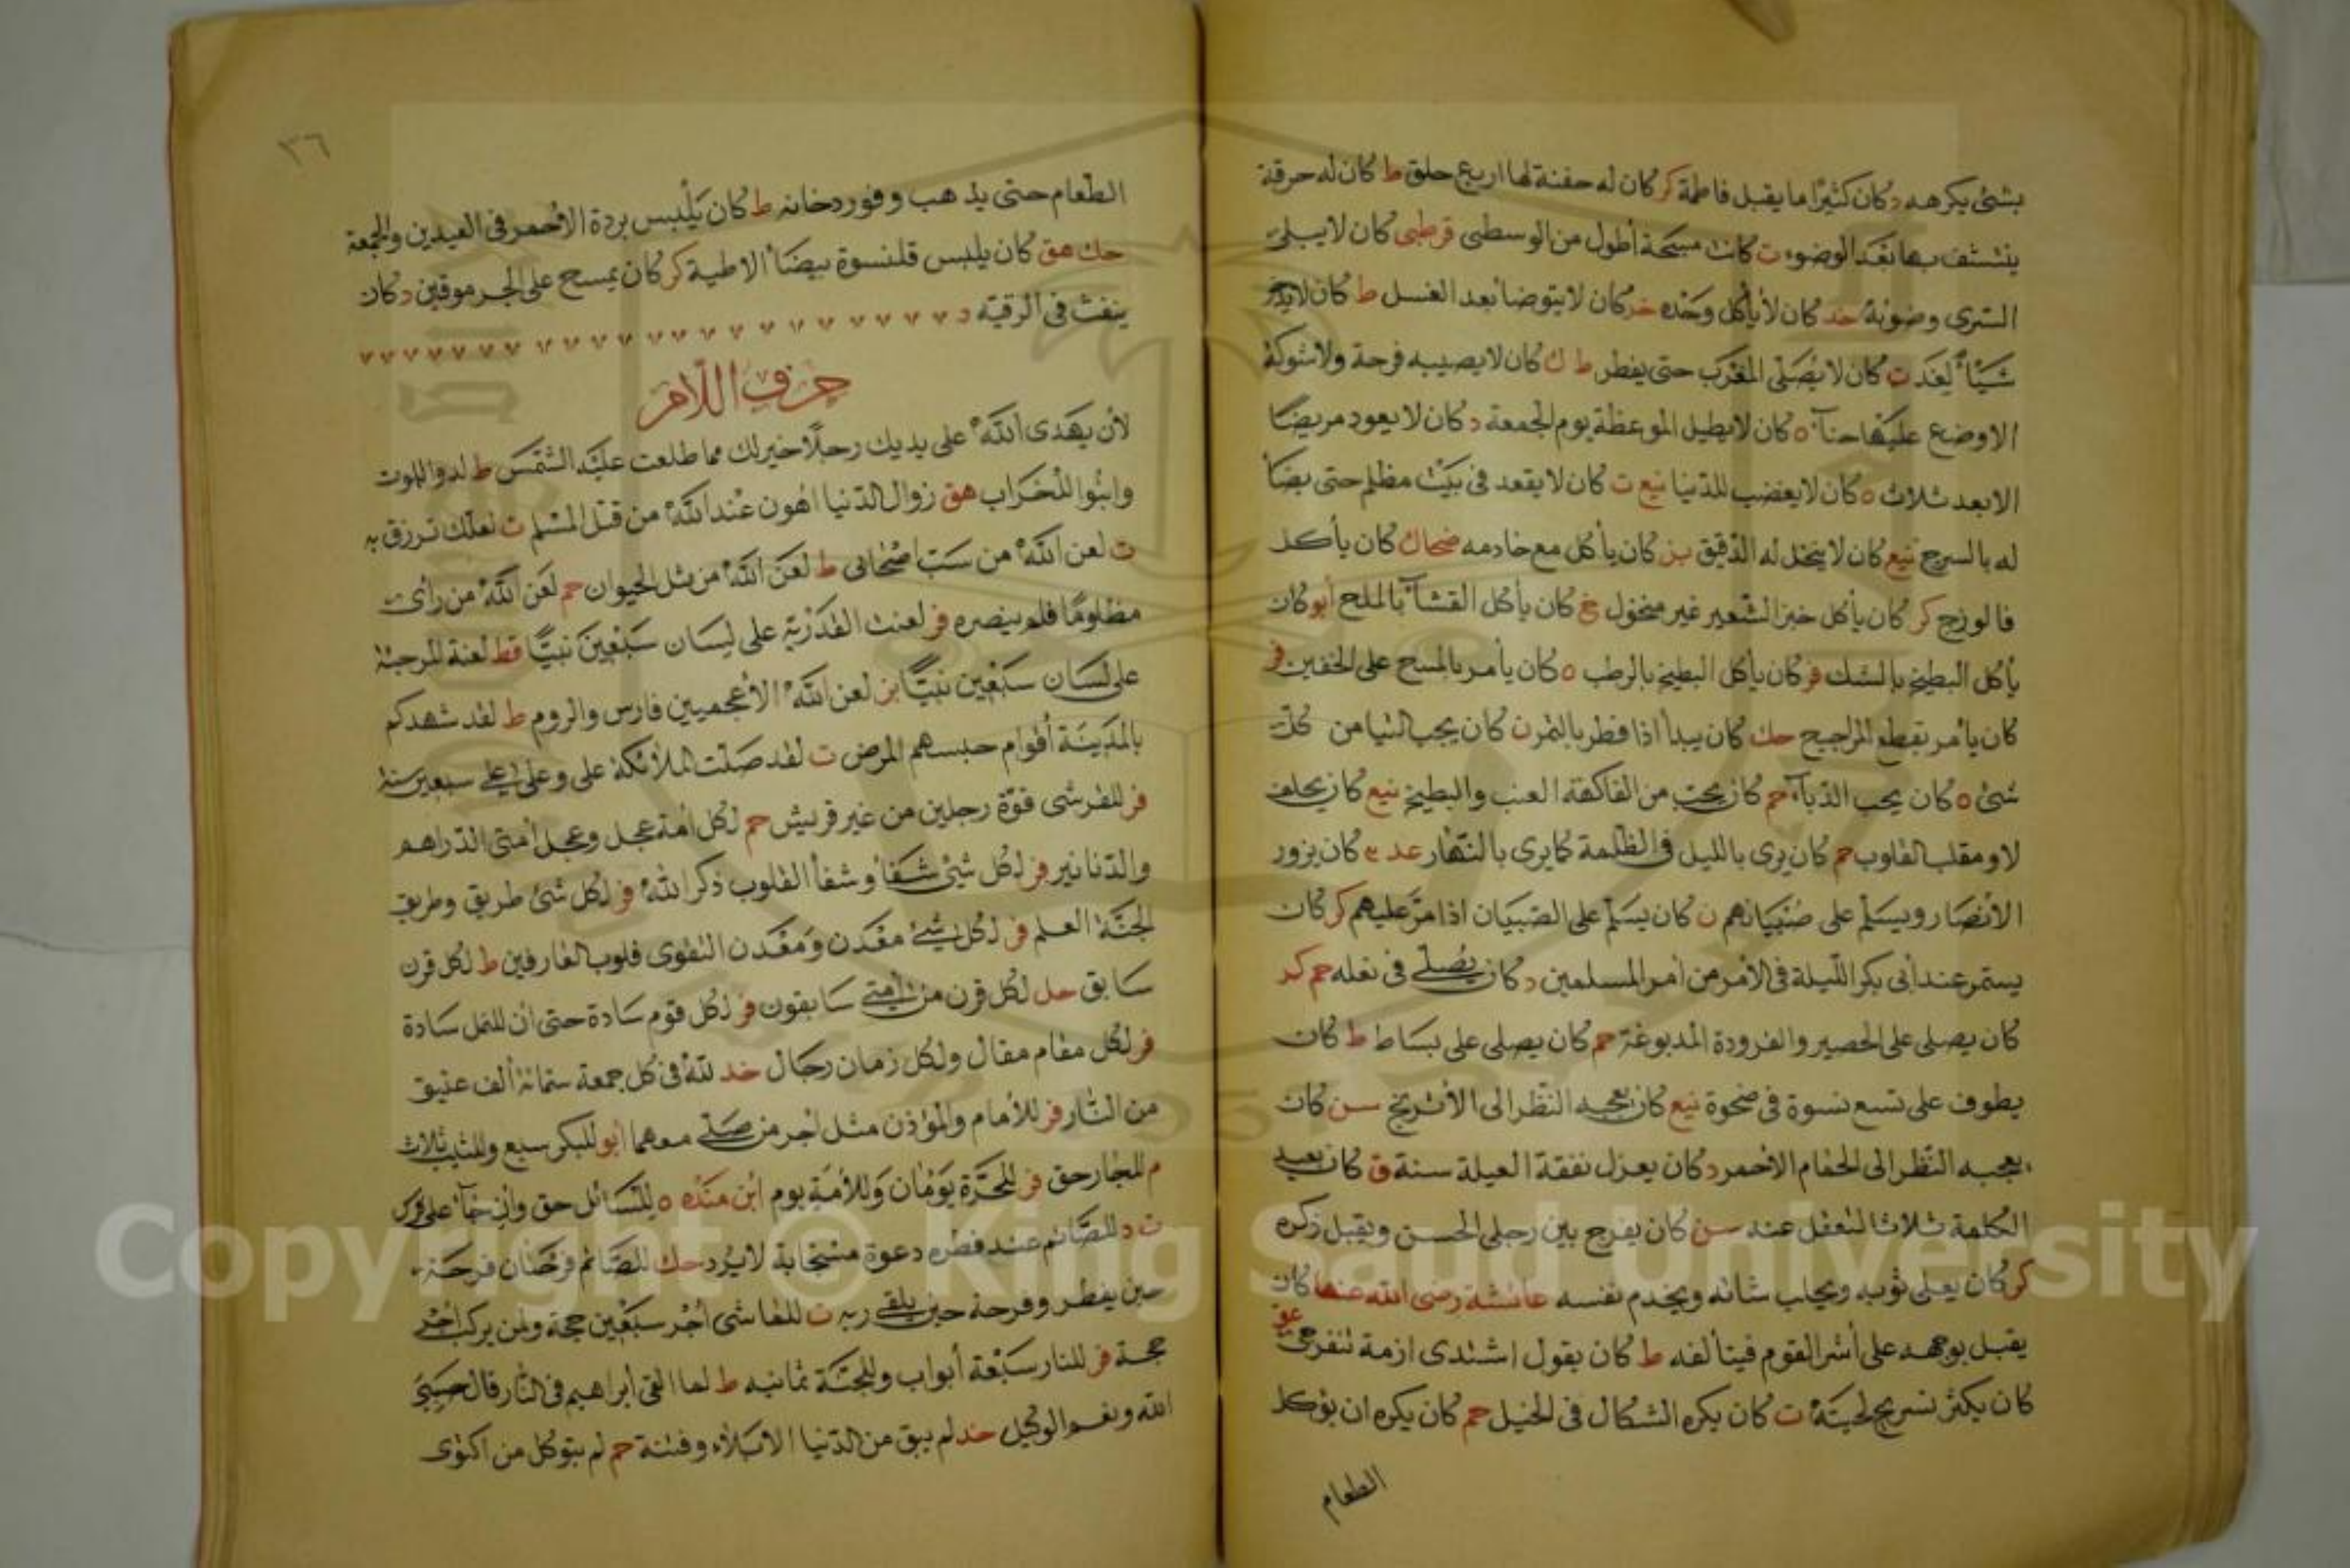 بشئ يكرهه د كان كثيرًا ما يقبل فاطمة كر كان له حفنة لها اربع حلق ط كان له حرقة
ينتشف بها بعد الوضوء ت كانت مسبحة أطول من الوسطى قرطبى كان لا يبلى
السرى وضوئه حد كان لا يأكل وحده خد كان لا يتوضا بعد الغسل ط كان لا يدخر
شيأ لغد ت كان لا يصلى المغرب حتى يفطر ط ك كان لا يصيبه قرحة ولا شوكة
الا وضع عليها حنآ ه كان لا يطيل الموعظة يوم الجمعة د كان لا يعود مريضًا
الا بعد ثلاث ه كان لا يغضب للدنيا نيع ت كان لا يقعد فى بيت مظلم حتى يضأ
له بالسرج نيع كان لا ينخل له الدقيق بز كان يأكل مع خادمه ضحاك كان يأكل
فالوزج كر كان يأكل خبز الشعير غير منخول خ كان يأكل القشآ بالملح أبو كان
يأكل البطيخ بالسك فر كان يأكل البطيخ بالرطب ه كان يأمر بالمسح على الخفين فر
كان يأمر بقطع المراجيح حك كان يبدأ اذا فطر بالتمر ن كان يحب التيامن كل
شئ ه كان يحب الدبآء حم كان يحب من الفاكهة العنب والبطيخ نيع كان يحلف
لا ومقلب القلوب حم كان يرى بالليل فى الظلمة كما يرى بالنهار عد كان يزور
الأنصار ويسلم على صبيانهم ن كان يسلم على الصبيان اذا مر عليهم كر كان
يستمر عند أبى بكر الليلة فى الأمر من امر المسلمين د كان يصلى فى نعله حم كر
كان يصلى على الحصير والفرودة المدبوغة حم كان يصلى على بساط ط كان
يطوف على تسع نسوة فى ضحوة نيع كان يعجبه النظر الى الأترنج سن كان
يعجبه النظر الى الحمام الاحمر د كان يعزل نفقة العيلة سنة ق كان يعيد
الكلمة ثلاثا لتعقل عنه سن كان يفرج بين رجلى الحسن ويقبل ذكره
كر كان يعلى ثوبه ويحلب شاته ويخدم نفسه عائشة رضى الله عنها كان
يقبل بوجهه على أشر القوم فيتألفه ط كان يقول اشتدى ازمة تنفرجى عو
كان يكثر تسريح لحيته ت كان يكره الشكال فى الخيل حم كان يكره ان يؤكل
الطعام
٣٦
الطعام حتى يذهب وفور دخانه ط كان يلبس بردة الاحمر فى العيدين والجمعة
حك هق كان يلبس قلنسوة بيضأ الاطية كر كان يمسح على الجرموقين د كان
ينفث فى الرقية د
حرف اللام
لأن يهدى الله على يديك رجلا خير لك مما طلعت عليه الشمس ط لدوا للموت
وابنوا للخراب هق زوال الدنيا اهون عند الله من قتل المسلم ت لعلك ترزق به
ت لعن الله من سب اصحابى ط لعن الله من مثل الحيوان حم لعن الله من رأى
مظلومًا فلم ينصره فر لعنت القدرية على لسان سبعين نبيًا قط لعنة المرجئة
على لسان سبعين نبيًا بز لعن الله الأعجميين فارس والروم ط لقد شهدكم
بالمدينة أقوام حبسهم المرض ت لقد صلت الملائكة على وعلى على سبعين سنة
فر للقرشى قوة رجلين من غير قريش حم لكل امة عجل وعجل امتى الدراهم
والدنانير فر لكل شئ شفأ وشفأ القلوب ذكر الله فر لكل شئ طريق وطريق
الجنة العلم فر لكل شئ معدن ومعدن التقوى قلوب العارفين ط لكل قرن
سابق حل لكل قرن من امتى سابقون فر لكل قوم سادة حتى ان للنمل سادة
فر لكل مقام مقال ولكل زمان رجال خد لله فى كل جمعة ستمائة ألف عتيق
من النار فر للأمام والمؤذن مثل اجر من صلى معهما أبو للبكر سبع وللثيب ثلاث
م للجار حق فر للحرة يومان وللأمة يوم ابن منده ه للسائل حق وان جآء على فرس
ت د للصائم عند فطره دعوة مستجابة لا يرد حك للصائم فرحتان فرحة
حين يفطر وفرحة حين يلقى ربه ت للماشى أجر سبعين حجة ولمن يركب اجر
حجة فر للنار سبعة أبواب وللجنة ثمانيه ط لما القى ابراهيم فى النار قال حسبى
الله ونعم الوكيل خد لم يبق من الدنيا الا بلاء وفتنة حم لم يتوكل من اكتوى